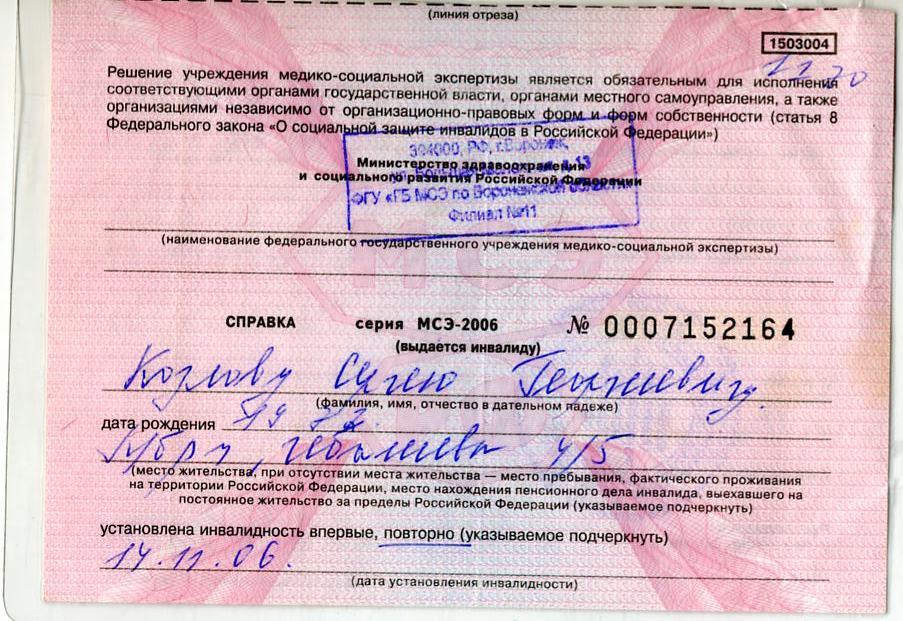 (линия отреза)
1503004
11 20
Решение учреждения медико-социальной экспертизы является обязательным для исполнения
соответствующими органами государственной власти, органами местного самоуправления, а также
организациями независимо от организационно-правовых форм и форм собственности (статья 8
Федерального закона «О социальной защите инвалидов в Российской Федерации»)
394000, РФ, г.Воронеж,
Министерство здравоохранения
и социального развития Российской Федерации
ФГУ «ГБ МСЭ по Воронежской области»
Филиал №11
(наименование федерального государственного учреждения медико-социальной экспертизы)
МСЭ
СПРАВКА серия МСЭ-2006 № 0007152164
(выдается инвалиду)
Козлову Сергею Георгиевичу
(фамилия, имя, отчество в дательном падеже)
дата рождения
4/5
(место жительства, при отсутствии места жительства — место пребывания, фактического проживания
на территории Российской Федерации, место нахождения пенсионного дела инвалида, выехавшего на
постоянное жительство за пределы Российской Федерации (указываемое подчеркнуть)
установлена инвалидность впервые, повторно (указываемое подчеркнуть)
14.11.06.
(дата установления инвалидности)